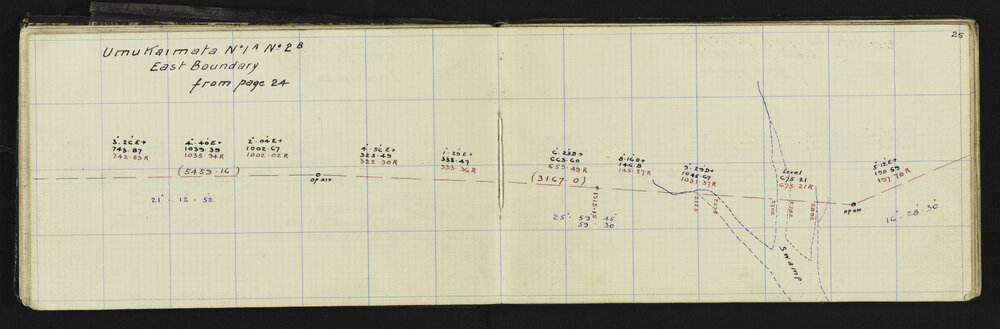 25
Umukaimata No 1A No 2B
East Boundary
from page 24
3°·26'E+
743·87
742·53R
4°·40'E+
1039·39
1035·94R
2°·04'E+
1002·67
1002·02R
4°·56'E+
323·49
322·30R
1°·29'E+
333·47
333·36R
6°·23'D+
663·60
659·49R
8°·16'D+
146·8
145·27R
9°·29'D+
1045·67
1031·37R
Level
675·21
675·21R
5°·12'E+
198·59
197·78R
(5459·16)
op·xiv
(3167·0)
1315·15
2125
op·xiii
21° · 12 · 52
25° · 59 · 45
59 · 30
16° · 28' · 30"
Swamp